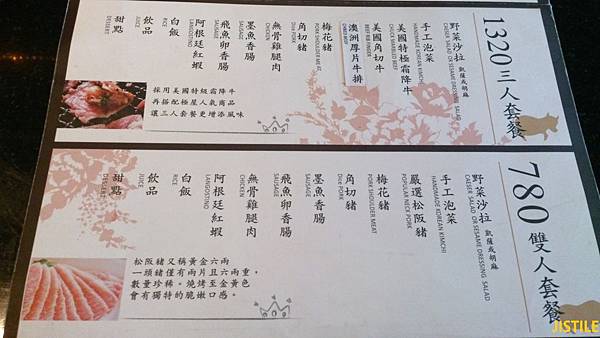 1320 三人套餐
野菜沙拉 凱薩或胡麻
CAESER SALAD OR SESAME DRESSING SALAD
手工泡菜
HANDMADE KOREAN KIMCHI
美國特極霜降牛
美國角切牛
澳洲厚片牛排
梅花豬
PORK SHOULDER MEAT
角切豬
Dice PORK
無骨雞腿肉
CHICKEN
墨魚香腸
SAUSAGE
飛魚卵香腸
SAUSAGE
阿根廷紅蝦
LANGOSTINO
白飯
RICE
飲品
JUICE
甜點
DESSERT
採用美國特級霜降牛
再搭配極屋人氣商品
讓三人套餐更增添風味
780 雙人套餐
野菜沙拉 凱薩或胡麻
CAESER SALAD OR SESAME DRESSING SALAD
手工泡菜
HANDMADE KOREAN KIMCHI
嚴選松阪豬
POPULAR NECK PORK
梅花豬
PORK SHOULDER MEAT
角切豬
Dice PORK
墨魚香腸
SAUSAGE
飛魚卵香腸
SAUSAGE
無骨雞腿肉
CHICKEN
阿根廷紅蝦
LANGOSTINO
白飯
RICE
飲品
JUICE
甜點
DESSERT
松阪豬又稱黃金六兩
一頭豬僅有兩片且六兩重，
數量珍稀。燒烤至金黃色
會有獨特的脆嫩口感。
JISTILE